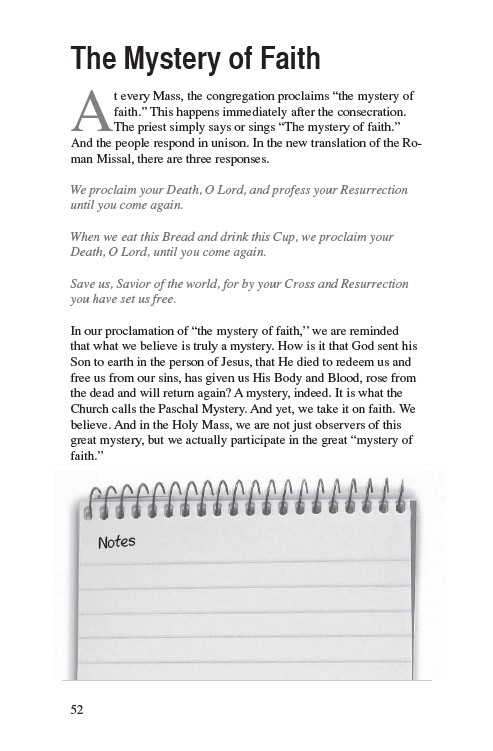 The Mystery of Faith
At every Mass, the congregation proclaims “the mystery of
faith.” This happens immediately after the consecration.
The priest simply says or sings “The mystery of faith.”
And the people respond in unison. In the new translation of the Ro-
man Missal, there are three responses.
We proclaim your Death, O Lord, and profess your Resurrection
until you come again.
When we eat this Bread and drink this Cup, we proclaim your
Death, O Lord, until you come again.
Save us, Savior of the world, for by your Cross and Resurrection
you have set us free.
In our proclamation of “the mystery of faith,’’ we are reminded
that what we believe is truly a mystery. How is it that God sent his
Son to earth in the person of Jesus, that He died to redeem us and
free us from our sins, has given us His Body and Blood, rose from
the dead and will return again? A mystery, indeed. It is what the
Church calls the Paschal Mystery. And yet, we take it on faith. We
believe. And in the Holy Mass, we are not just observers of this
great mystery, but we actually participate in the great “mystery of
faith.”
Notes
52